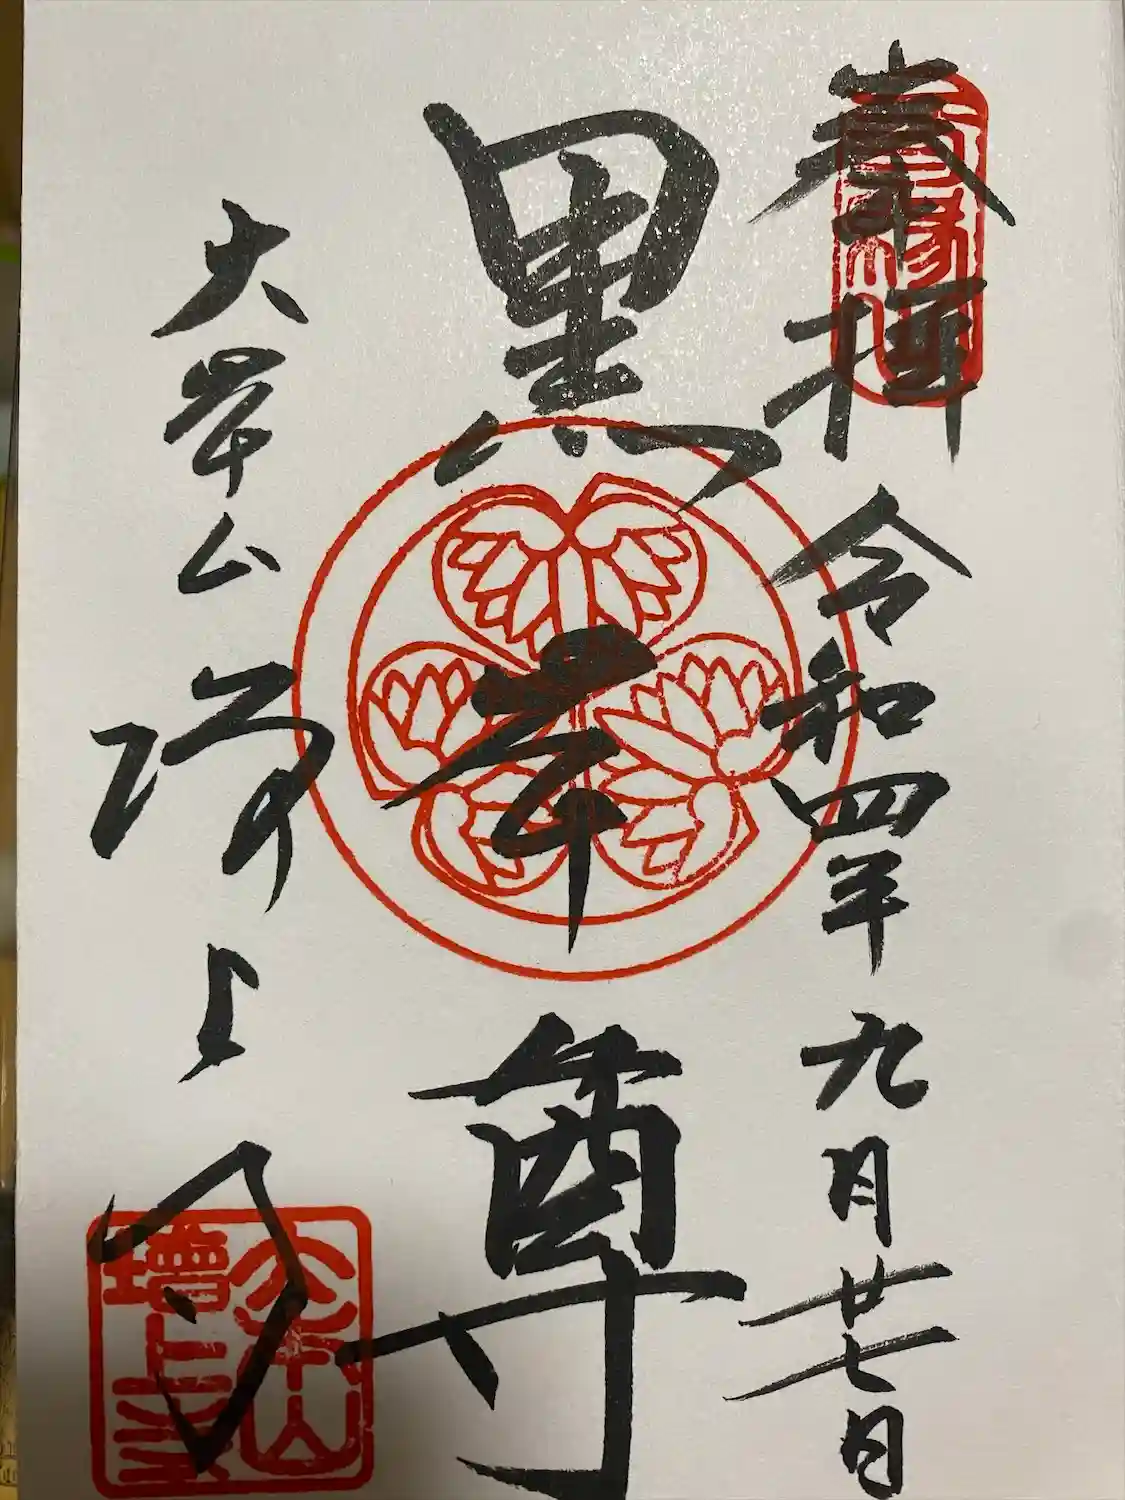 奉拝 令和四年九月廿七日
黒本尊
大本山 増上寺
大本山
増上寺